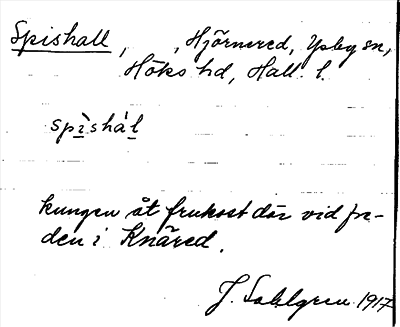 Spishall, , Hjörnered, Ysby sn,
Höks hd, Hall. l.
spìshá̀l
kungen åt frukost där vid fre-
den i Knäred.
J. Sahlgren 1917